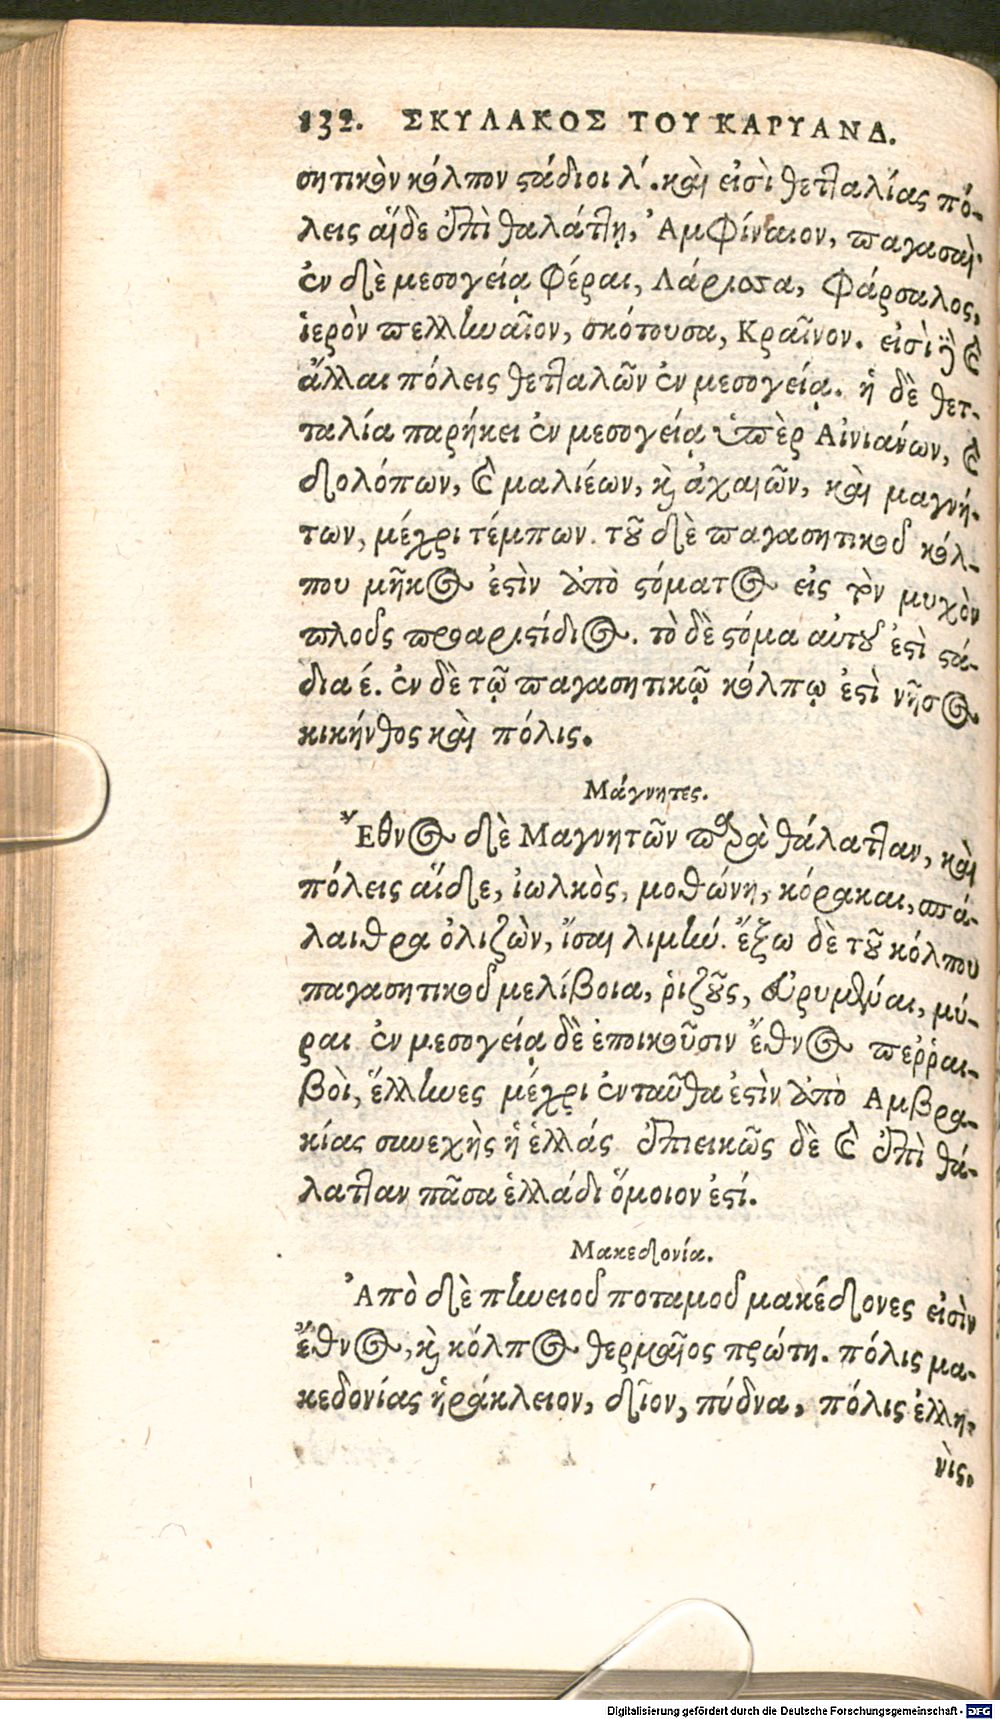 132. ΣΚΥΛΑΚΟΣ ΤΟΥ ΚΑΡΥΑΝΔ.
σητικὸν κόλπον στάδιοι λʹ. καὶ εἰσὶ θετταλίας πό-
λεις αἵδε ἐπὶ θαλάττῃ, Ἀμφίναιον, παγασαὶ·
ἐν δὲ μεσογείᾳ Φέραι, Λάρισσα, Φάρσαλος,
ἱερὸν πελληναῖον, σκότουσα, Κραῖνον. εἰσὶ δὲ καὶ
ἄλλαι πόλεις θετταλῶν ἐν μεσογείᾳ. ἡ δὲ θετ-
ταλία παρήκει ἐν μεσογείᾳ ὑπὲρ Αἰνιάνων, καὶ
δολόπων, καὶ μαλιέων, καὶ ἀχαιῶν, καὶ μαγνή-
των, μέχρι τέμπων. τοῦ δὲ παγασητικοῦ κόλ-
που μῆκος ἐστὶν ἀπὸ στόματος εἰς τὸν μυχὸν
πλοῦς προαριστίδιος. τὸ δὲ στόμα αὐτοῦ ἐστὶ στά-
δια έ. ἐν δὲ τῷ παγασητικῷ κόλπῳ ἐστὶ νῆσος
κικήνθος καὶ πόλις.
Μάγνητες.
Ἔθνος δὲ Μαγνητῶν παρὰ θάλατταν, καὶ
πόλεις αἵδε, ἰωλκὸς, μοθώνη, κόρακαι, σπά-
λαιθρα ὀλιζὼν, ἴσαι λιμήν. ἔξω δὲ τοῦ κόλπου
παγασητικοῦ μελίβοια, ῥιζοῦς, εὐρυμεναί, μύ-
ραι ἐν μεσογείᾳ δὲ ἐποικοῦσιν ἔθνος περραι-
βοὶ, ἕλληνες μέχρι ἐνταῦθα ἐστὶν ἀπὸ Ἀμβρα-
κίας συνεχὴς ἡ ἑλλάς ἐπιεικῶς δὲ καὶ ἐπὶ θά-
λατταν πᾶσα ἑλλάδι ὅμοιον ἐστί.
Μακεδονία.
Ἀπὸ δὲ πηνειοῦ ποταμοῦ μακέδονες εἰσὶν
ἔθνος, καὶ κόλπος θερμαῖος πρώτη. πόλις μα-
κεδονίας ἡράκλειον, δῖον, πύδνα, πόλις ἑλλη-
νὶς.
Digitalisierung gefördert durch die Deutsche Forschungsgemeinschaft - DFG